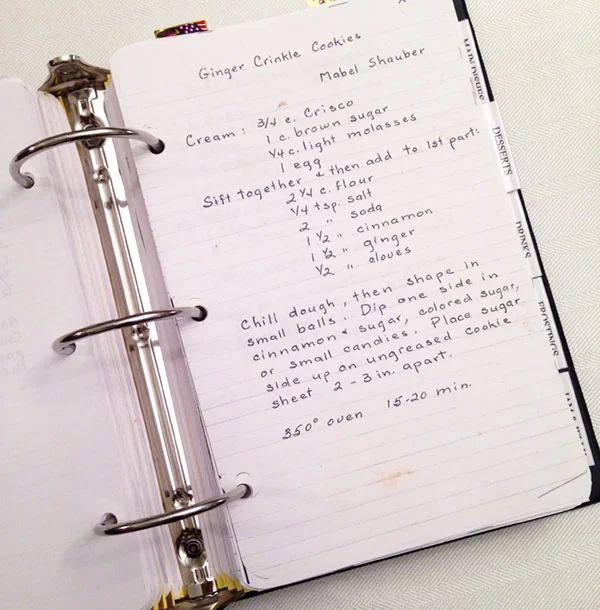 Ginger Crinkle Cookies
Mabel Shauber
Cream: 3/4 c. Crisco
1 c. brown sugar
1/4 c. light molasses
1 egg
Sift together & then add to 1st part:
2 1/4 c. flour
1/4 tsp. salt
2 " soda
1 1/2 " cinnamon
1 1/2 " ginger
1/2 " cloves
Chill dough, then shape in
small balls. Dip one side in
cinnamon & sugar, colored sugar,
or small candies. Place sugar
side up on ungreased cookie
sheet 2-3 in. apart.
350° oven 15-20 min.
MAIN DISHES
DESSERTS
DRINKS
FROSTINGS